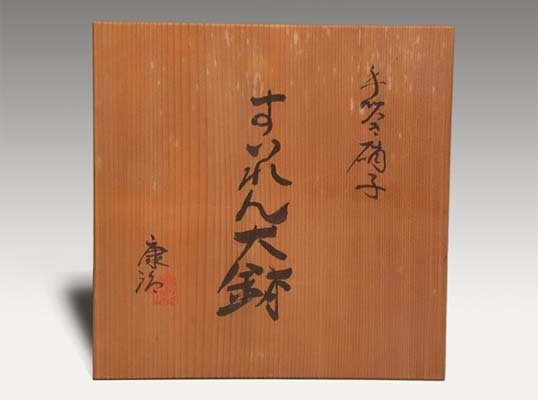 手吹き硝子
すいれん大鉢
康治